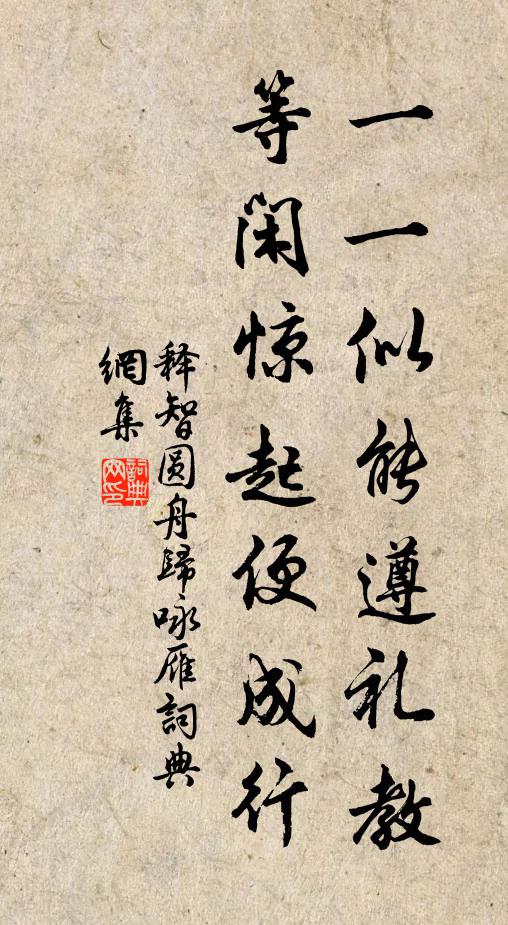 一一似能遵礼教
等闲惊起便成行
释智圆舟歸咏雁詞典
網集
詞典
网印